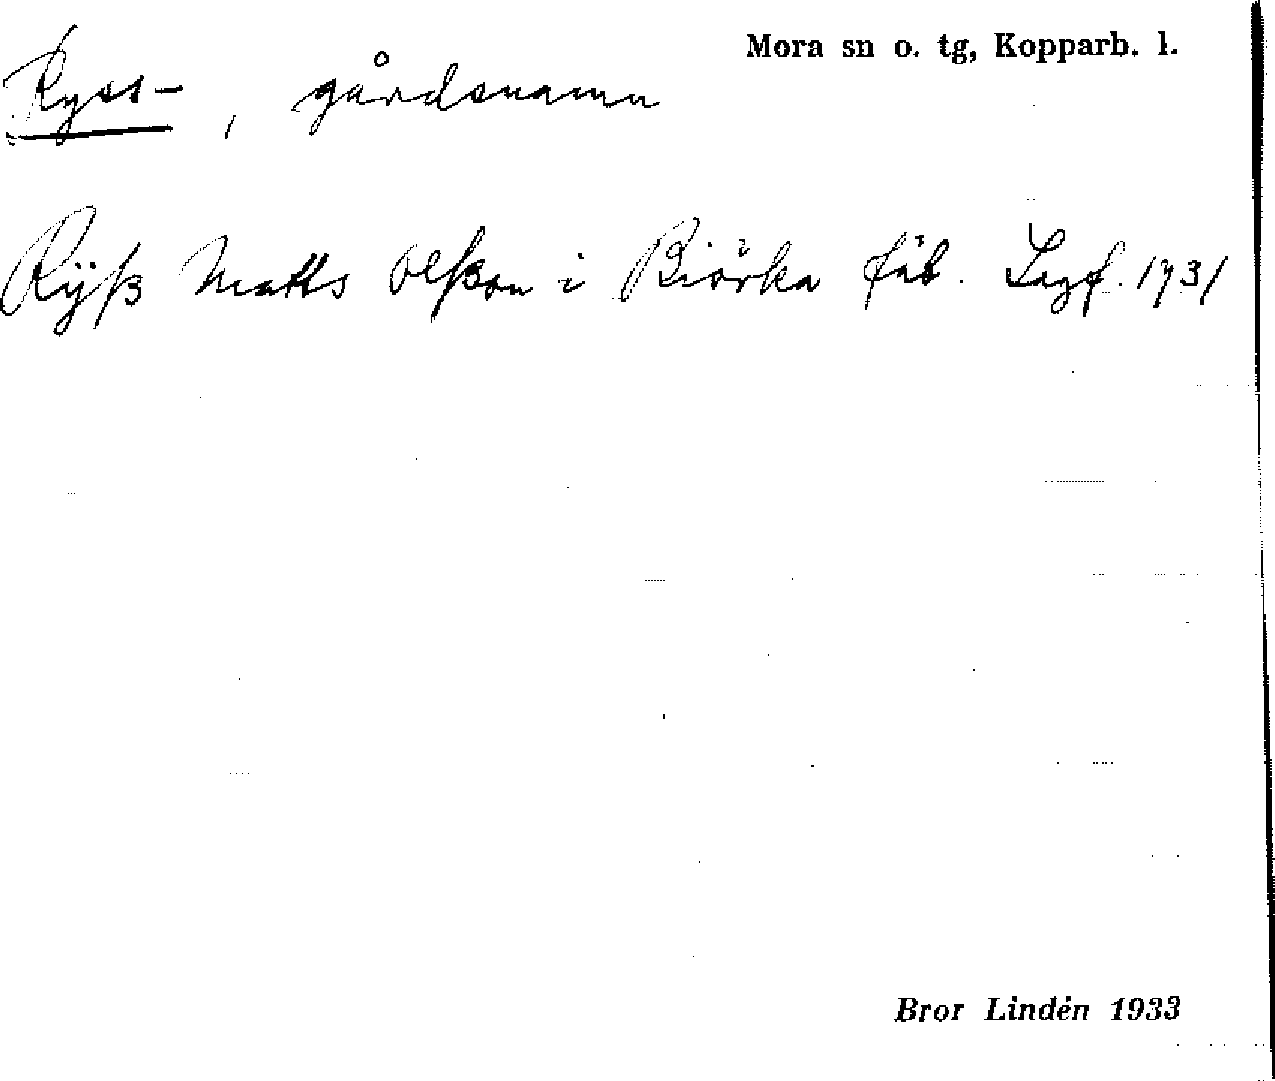 Mora sn o. tg, Kopparb. l.
Ryss-, gårdsnamn
Rÿß Matts Olßon i Biörka fäb. Lagf. 1731
Bror Lindén 1933